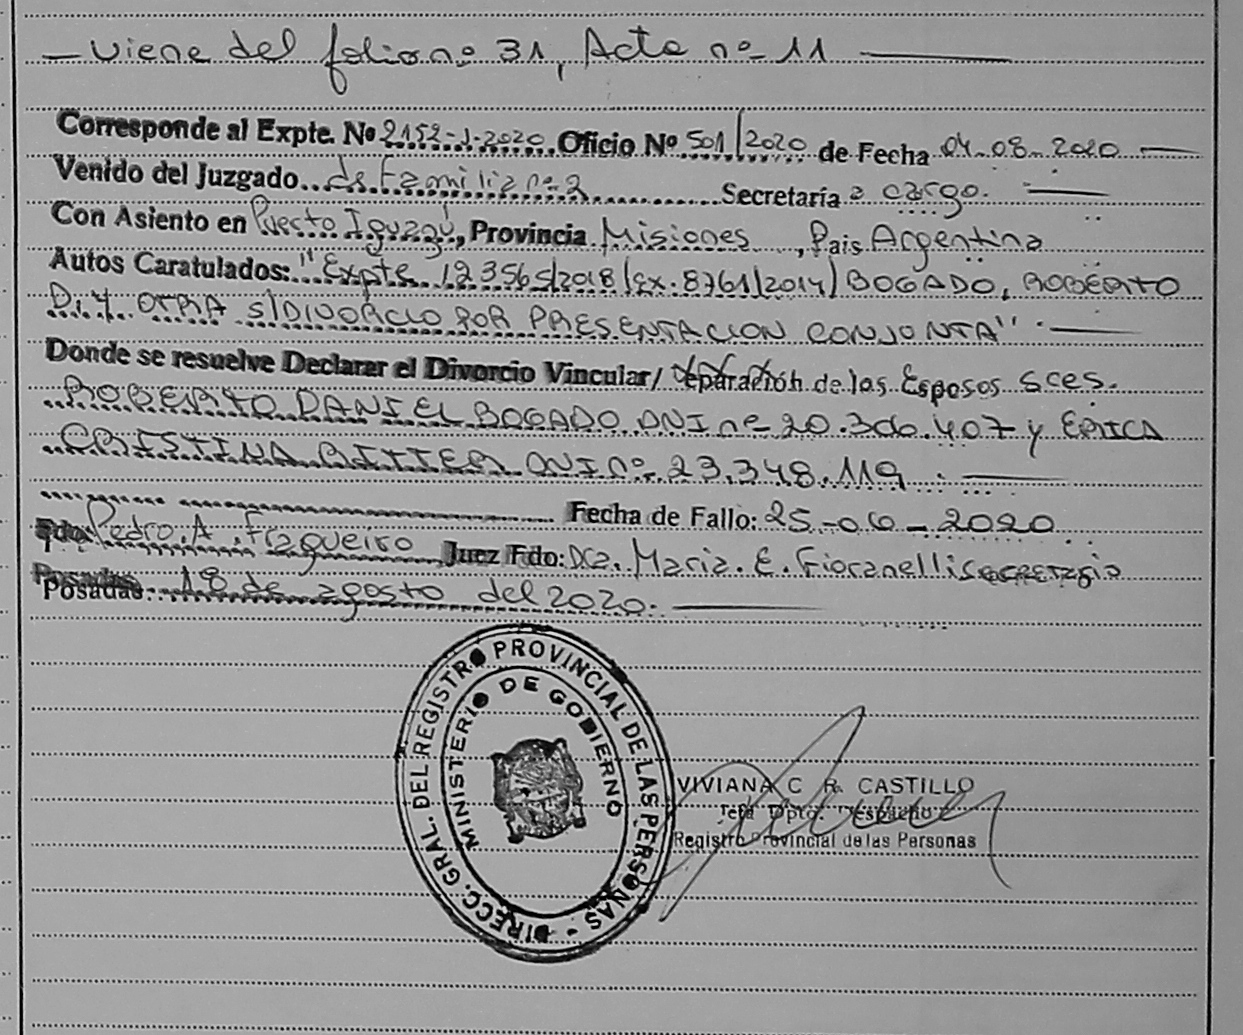 — viene del folio nº 31, Acta nº 11 —
Corresponde al Expte. Nº 2152-J-2020 Oficio Nº 501/2020 de Fecha 04-08-2020 —
Venido del Juzgado de Familia nº 2 Secretaría a cargo. —
Con Asiento en Puerto Iguazú, Provincia Misiones, Pais Argentina
Autos Caratulados: "Expte 123565/2018 (Ex. 8761/2014) BOGADO, ROBERTO
D. Y OTRA S/DIVORCIO POR PRESENTACION CONJUNTA". —
Donde se resuelve Declarar el Divorcio Vincular/ Separación de los Esposos Sres.
ROBERTO DANIEL BOGADO DNI nº 20.306.407 y ERICA
CRISTINA RITTER DNI nº 23.348.119. —
Fecha de Fallo: 25-06-2020
Fdo: Pedro A. Fragueiro Juez Fdo: Dra. Maria. E. Fioranelli secretaria
Posadas: 18 de agosto del 2020. —
DIRECC. GRAL. DEL REGISTRO PROVINCIAL DE LAS PERSONAS -
MINISTERIO DE GOBIERNO
VIVIANA C. R. CASTILLO
Jefa Dpto. Despacho
Registro Provincial de las Personas